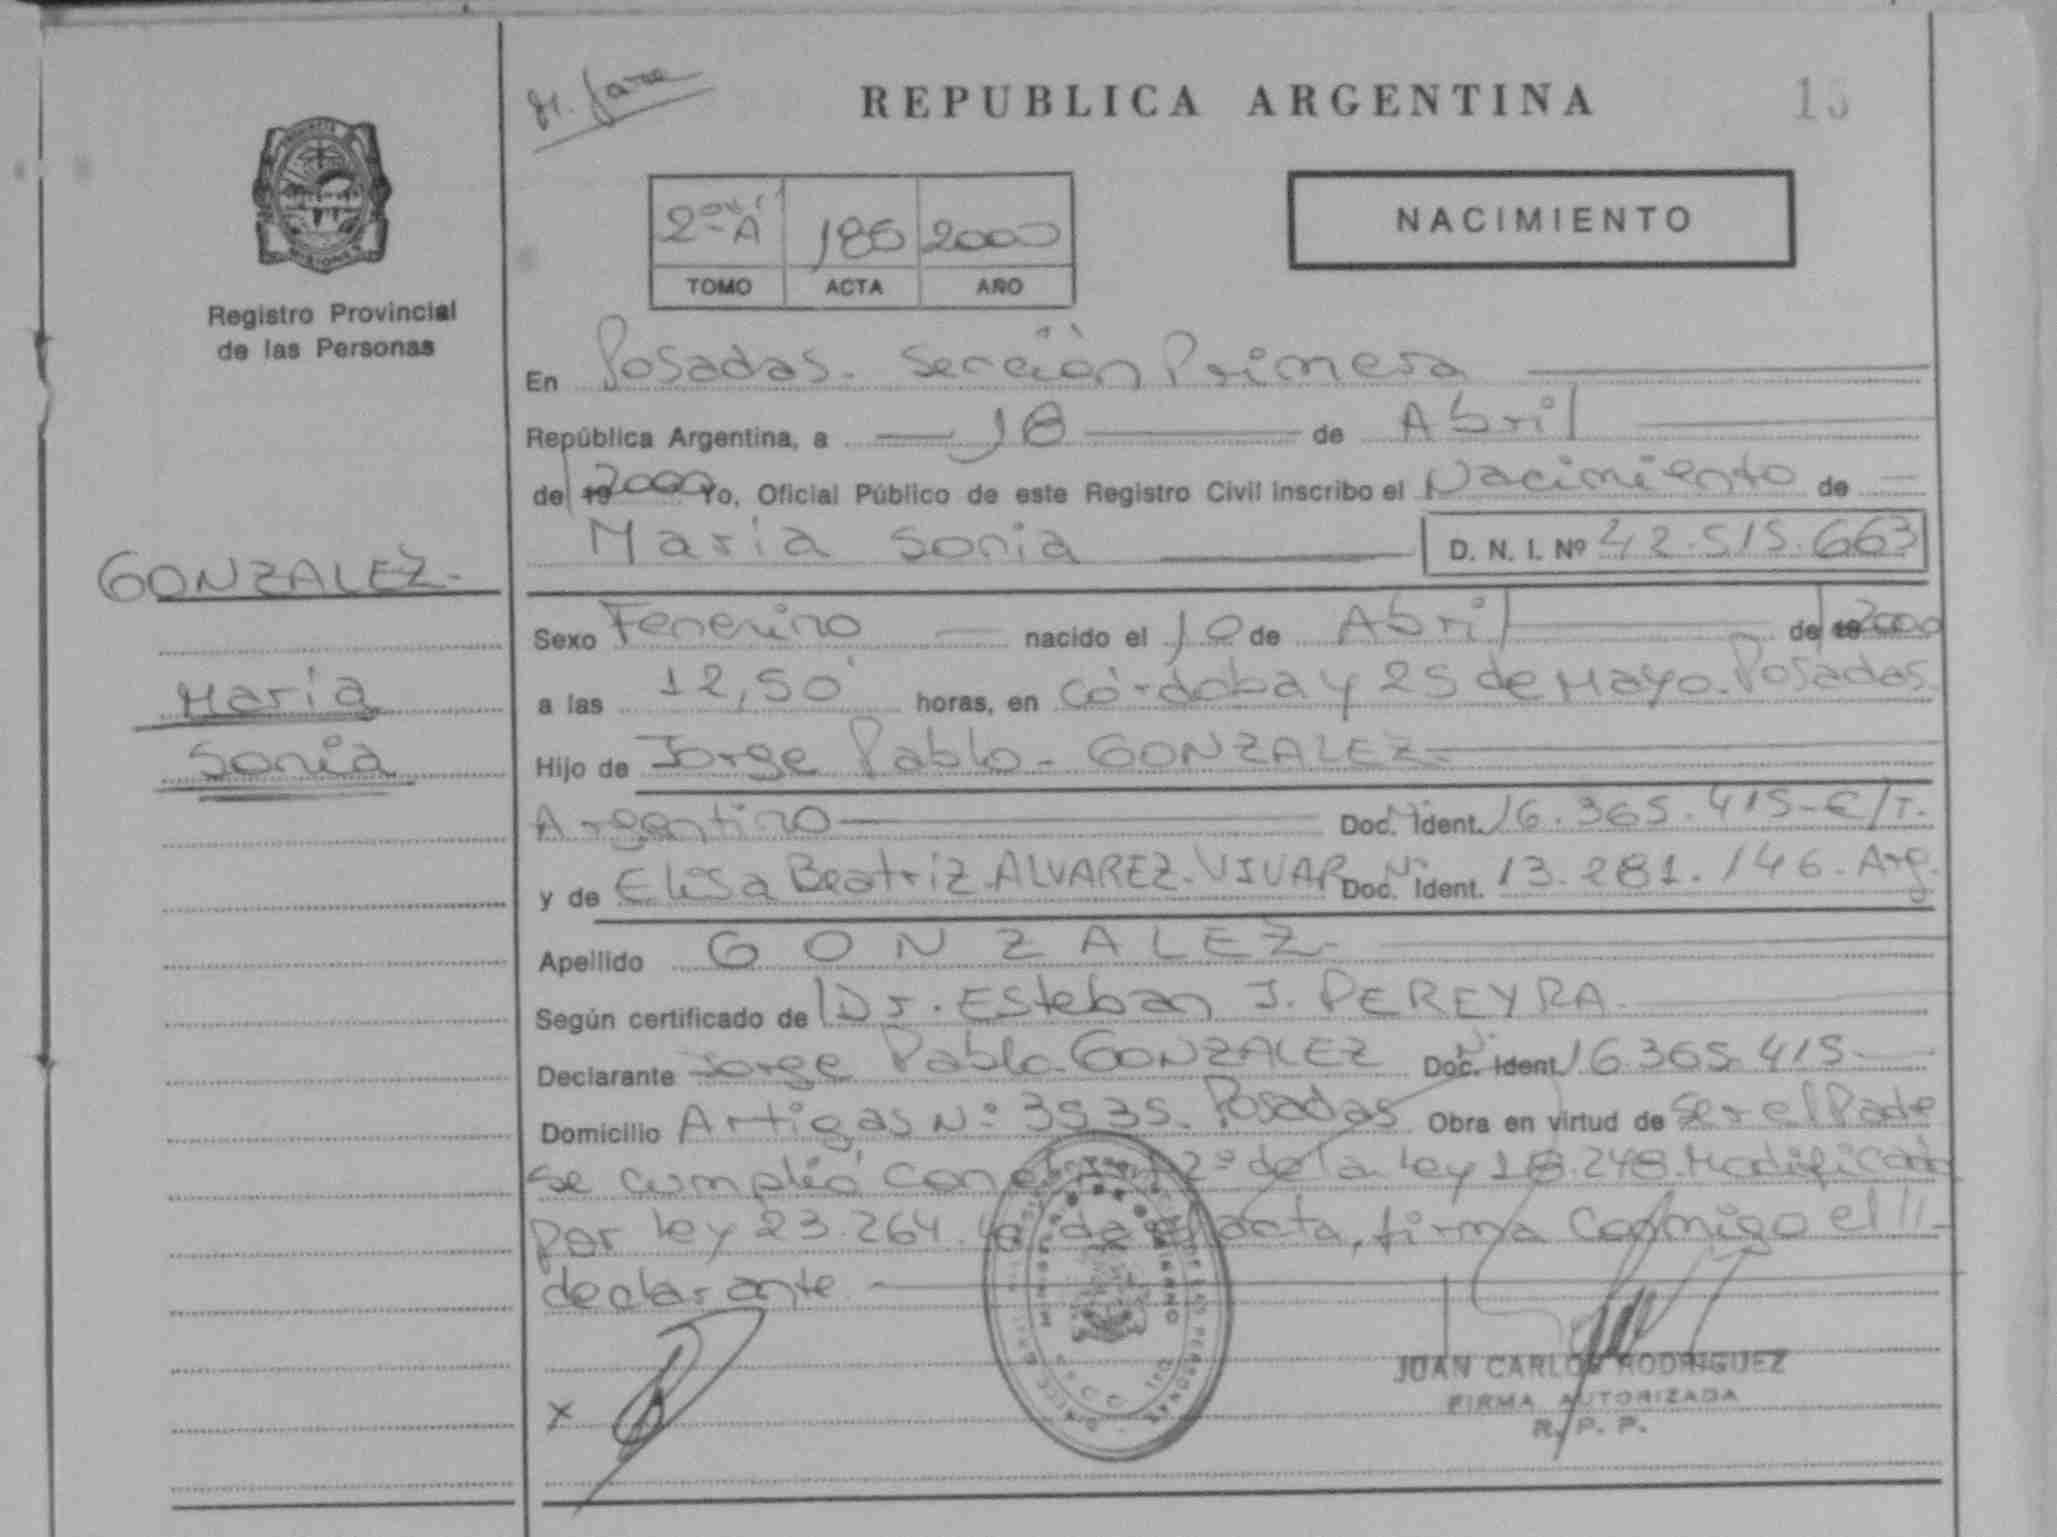 REPUBLICA ARGENTINA
NACIMIENTO
2º A 186 2000
TOMO ACTA AÑO
Registro Provincial
de las Personas
GONZALEZ-
María
Sonia
En Posadas. Sección Primera
República Argentina, a 18 de Abril
de 19 2000 Yo, Oficial Público de este Registro Civil inscribo el Nacimiento de
María Sonia D. N. I. Nº 42.515.663
Sexo Femenino nacido el 10 de Abril de 19 2000
a las 12,50 horas, en Córdoba y 25 de Mayo. Posadas.
Hijo de Jorge Pablo - GONZALEZ-
Argentino Doc. Ident. 16.365.415-E/T.
y de Elisa Beatriz ALVAREZ-VIVAR Doc. Ident. 13.281.146. Arg.
Apellido GONZALEZ-
Según certificado de Dr. Esteban J. PEREYRA.
Declarante Jorge Pablo GONZALEZ Doc. Ident. 16.365.415
Domicilio Artigas Nº 3535. Posadas Obra en virtud de ser el Padre
se cumplió con el 2º de la Ley 18.248. Modificado
por Ley 23.264. acta, firma conmigo el
declarante
X
JUAN CARLOS RODRIGUEZ
FIRMA AUTORIZADA
R. P. P.